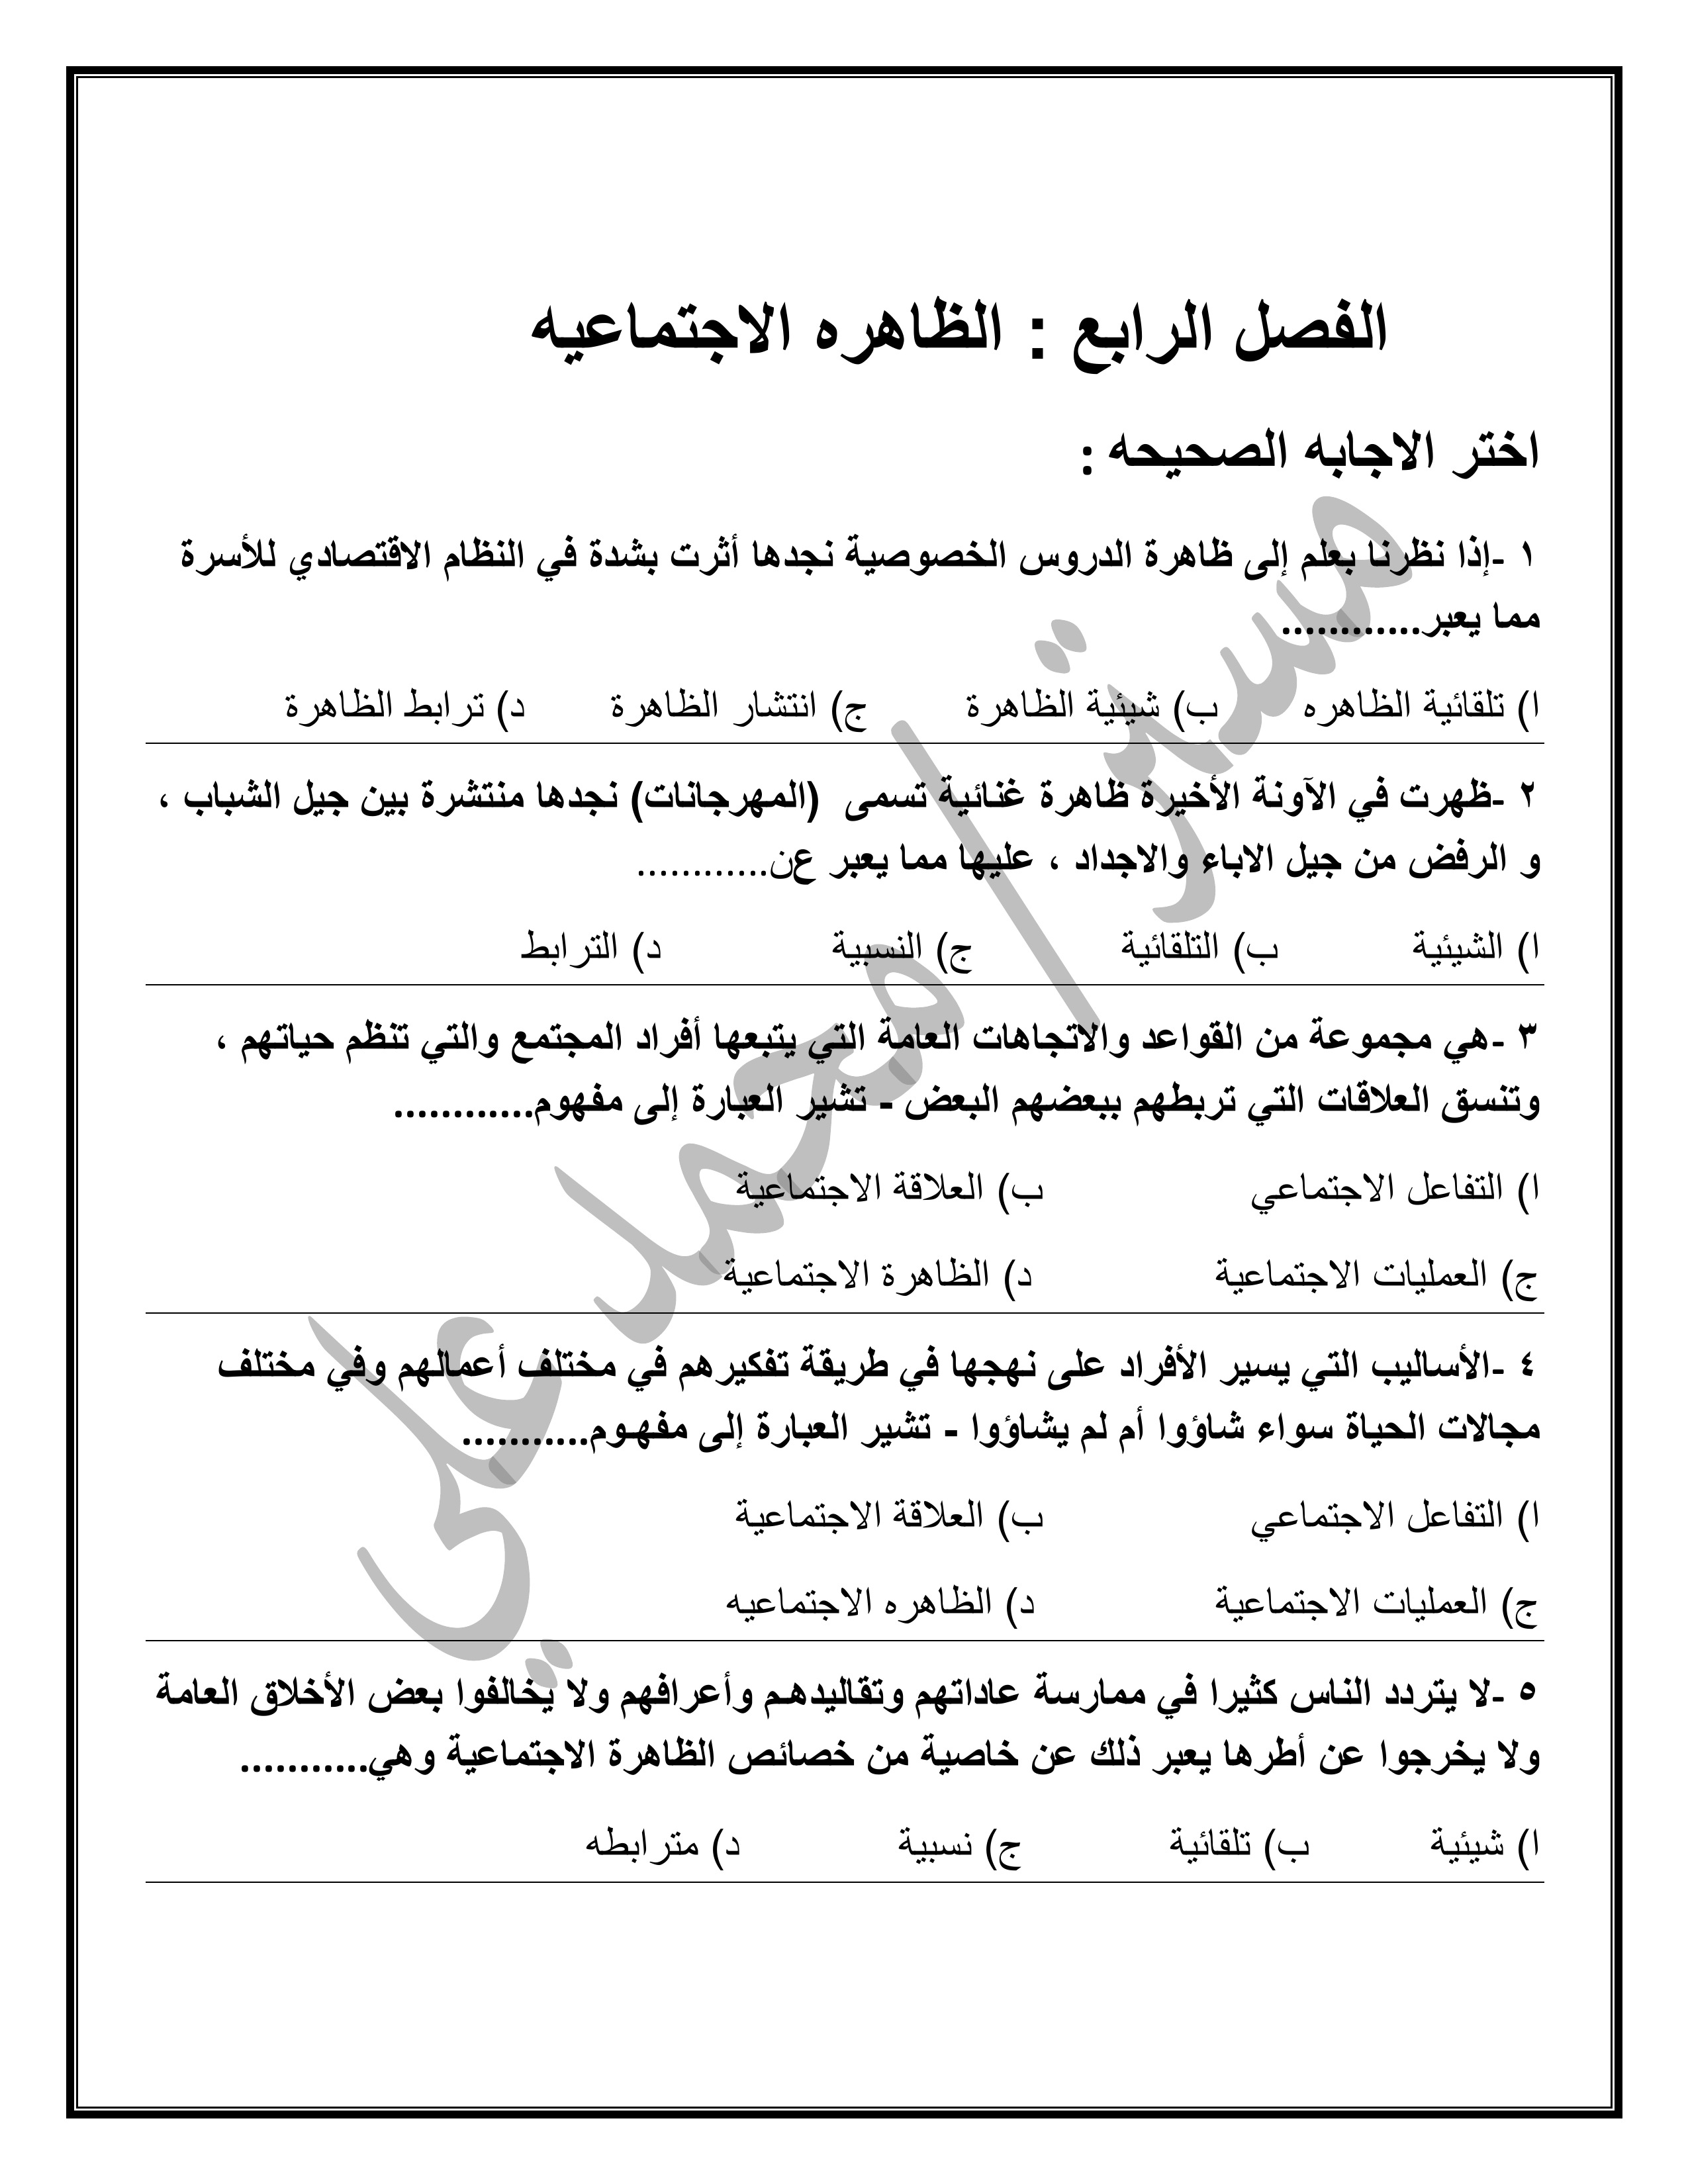 الفصل الرابع : الظاهره الاجتماعيه
اختر الاجابه الصحيحه :
١ -إذا نظرنا بعلم إلى ظاهرة الدروس الخصوصية نجدها أثرت بشدة في النظام الاقتصادي للأسرة
مما يعبر............
ا) تلقائية الظاهره ب) شيئية الظاهرة ج) انتشار الظاهرة د) ترابط الظاهرة
٢ -ظهرت في الآونة الأخيرة ظاهرة غنائية تسمى (المهرجانات) نجدها منتشرة بين جيل الشباب ،
و الرفض من جيل الاباء والاجداد ، عليها مما يعبر عن............
ا) الشيئية ب) التلقائية ج) النسبية د) الترابط
٣ -هي مجموعة من القواعد والاتجاهات العامة التي يتبعها أفراد المجتمع والتي تنظم حياتهم ،
وتنسق العلاقات التي تربطهم ببعضهم البعض - تشير العبارة إلى مفهوم............
ا) التفاعل الاجتماعي ب) العلاقة الاجتماعية
ج) العمليات الاجتماعية د) الظاهرة الاجتماعية
٤ -الأساليب التي يسير الأفراد على نهجها في طريقة تفكيرهم في مختلف أعمالهم وفي مختلف
مجالات الحياة سواء شاؤوا أم لم يشاؤوا - تشير العبارة إلى مفهوم...........
ا) التفاعل الاجتماعي ب) العلاقة الاجتماعية
ج) العمليات الاجتماعية د) الظاهره الاجتماعيه
٥ -لا يتردد الناس كثيرا في ممارسة عاداتهم وتقاليدهم وأعرافهم ولا يخالفوا بعض الأخلاق العامة
ولا يخرجوا عن أطرها يعبر ذلك عن خاصية من خصائص الظاهرة الاجتماعية وهي...........
ا) شيئية ب) تلقائية ج) نسبية د) مترابطه
مستر/ محمد علي